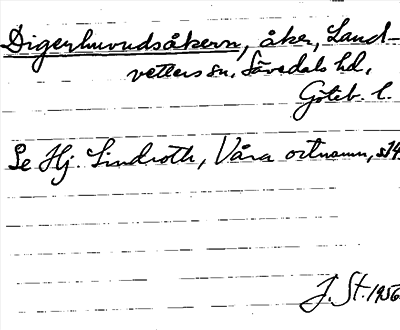 Digerhuvudsåkern, åker, Land-
vetters sn, Sävedals hd,
Göteb. l.
Se Hj. Lindroth, Våra ortnamn, s14
J. St. 1956